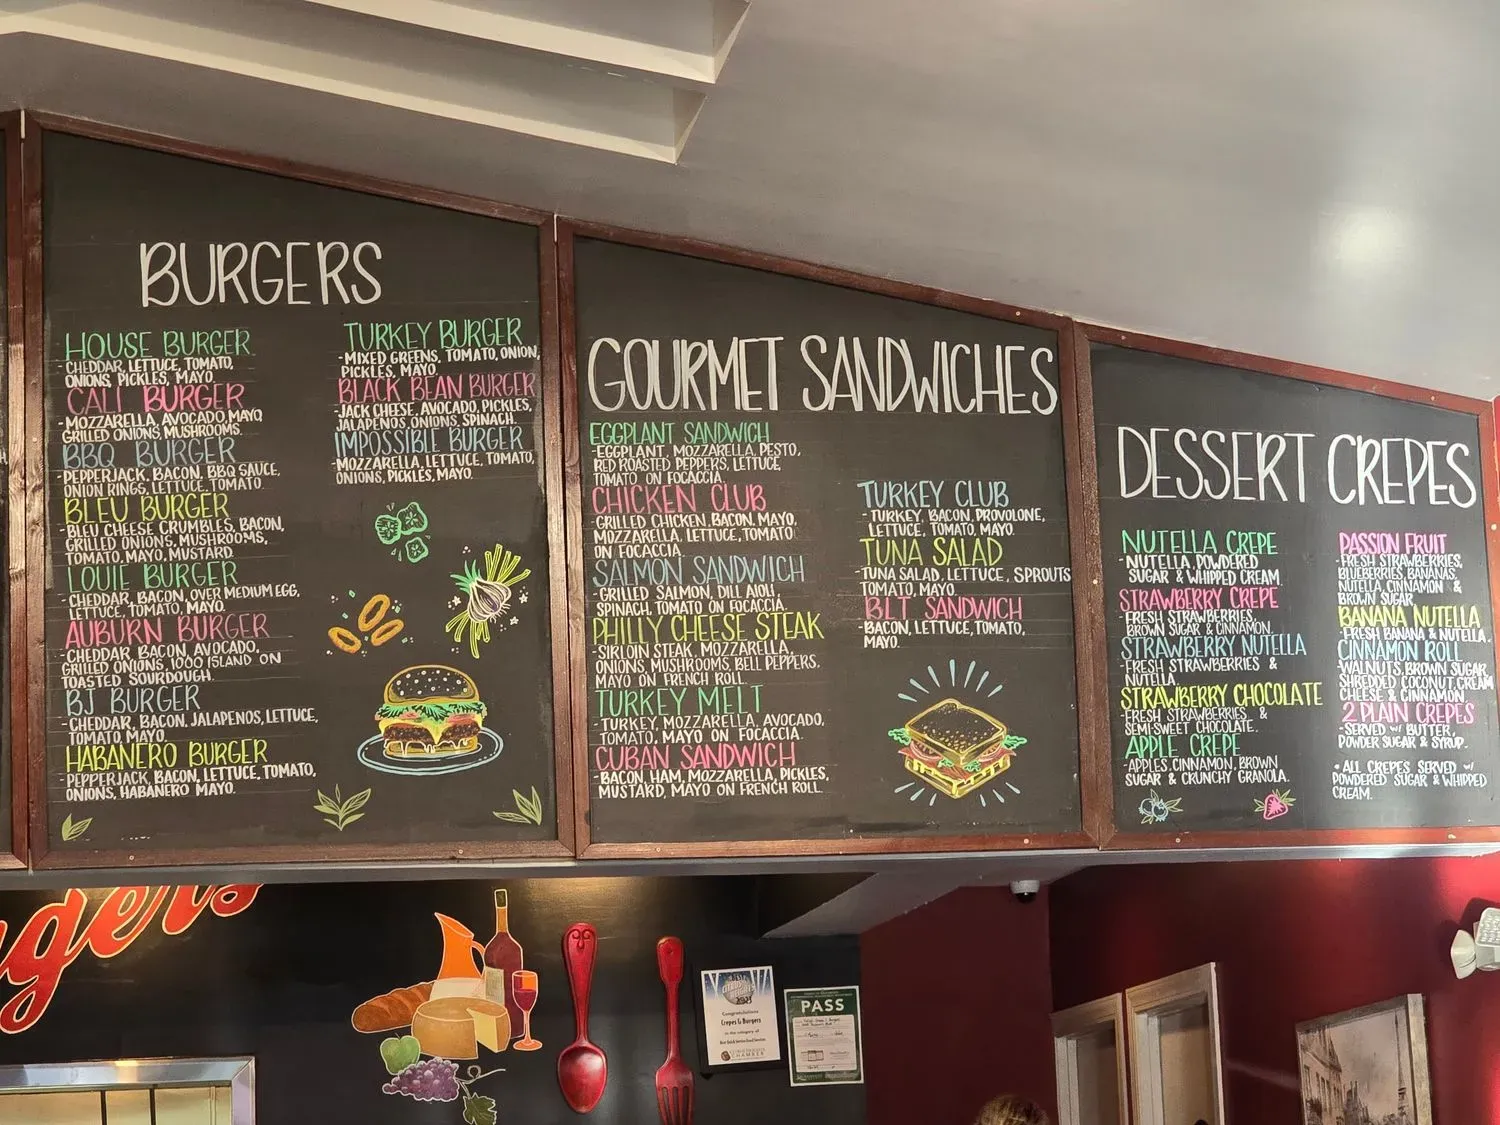 BURGERS
HOUSE BURGER
-CHEDDAR, LETTUCE, TOMATO,
ONIONS, PICKLES, MAYO
CALI BURGER
-MOZZARELLA, AVOCADO, MAYO,
GRILLED ONIONS, MUSHROOMS.
BBQ BURGER
-PEPPERJACK, BACON, BBQ SAUCE,
ONION RINGS, LETTUCE, TOMATO.
BLEU BURGER
-BLEU CHEESE CRUMBLES, BACON,
GRILLED ONIONS, MUSHROOMS,
TOMATO, MAYO, MUSTARD.
LOUIE BURGER
-CHEDDAR, BACON, OVER MEDIUM EGG,
LETTUCE, TOMATO, MAYO.
AUBURN BURGER
-CHEDDAR, BACON, AVOCADO,
GRILLED ONIONS, 1000 ISLAND ON
TOASTED SOURDOUGH.
BJ BURGER
-CHEDDAR, BACON, JALAPENOS, LETTUCE,
TOMATO, MAYO.
HABANERO BURGER
-PEPPERJACK, BACON, LETTUCE, TOMATO,
ONIONS, HABANERO MAYO.
TURKEY BURGER
-MIXED GREENS, TOMATO, ONION,
PICKLES, MAYO.
BLACK BEAN BURGER
-JACK CHEESE, AVOCADO, PICKLES,
JALAPENOS, ONIONS, SPINACH.
IMPOSSIBLE BURGER
-MOZZARELLA, LETTUCE, TOMATO,
ONIONS, PICKLES, MAYO.
GOURMET SANDWICHES
EGGPLANT SANDWICH
-EGGPLANT, MOZZARELLA, PESTO,
RED ROASTED PEPPERS, LETTUCE,
TOMATO ON FOCACCIA.
CHICKEN CLUB
-GRILLED CHICKEN, BACON, MAYO,
MOZZARELLA, LETTUCE, TOMATO
ON FOCACCIA.
SALMON SANDWICH
-GRILLED SALMON, DILL AIOLI,
SPINACH, TOMATO ON FOCACCIA.
PHILLY CHEESE STEAK
-SIRLOIN STEAK, MOZZARELLA,
ONIONS, MUSHROOMS, BELL PEPPERS,
MAYO ON FRENCH ROLL.
TURKEY MELT
-TURKEY, MOZZARELLA, AVOCADO,
TOMATO, MAYO ON FOCACCIA.
CUBAN SANDWICH
-BACON, HAM, MOZZARELLA, PICKLES,
MUSTARD, MAYO ON FRENCH ROLL.
TURKEY CLUB
-TURKEY, BACON, PROVOLONE,
LETTUCE, TOMATO, MAYO.
TUNA SALAD
-TUNA SALAD, LETTUCE, SPROUTS
TOMATO, MAYO.
BLT SANDWICH
-BACON, LETTUCE, TOMATO,
MAYO.
DESSERT CREPES
NUTELLA CREPE
-NUTELLA, POWDERED
SUGAR & WHIPPED CREAM.
STRAWBERRY CREPE
-FRESH STRAWBERRIES,
BROWN SUGAR & CINNAMON.
STRAWBERRY NUTELLA
-FRESH STRAWBERRIES &
NUTELLA.
STRAWBERRY CHOCOLATE
-FRESH STRAWBERRIES &
SEMI-SWEET CHOCOLATE.
APPLE CREPE
-APPLES, CINNAMON, BROWN
SUGAR & CRUNCHY GRANOLA.
PASSION FRUIT
-FRESH STRAWBERRIES,
BLUEBERRIES, BANANAS,
NUTELLA, CINNAMON &
BROWN SUGAR
BANANA NUTELLA
-FRESH BANANA & NUTELLA.
CINNAMON ROLL
-WALNUTS, BROWN SUGAR
SHREDDED COCONUT, CREAM
CHEESE & CINNAMON
2 PLAIN CREPES
-SERVED w/ BUTTER,
POWDER SUGAR & SYRUP.
• ALL CREPES SERVED w/
POWDERED SUGAR & WHIPPED
CREAM.
gers
2023
Congratulations
Crepes & Burgers
in the category of
CHAMBER
PASS